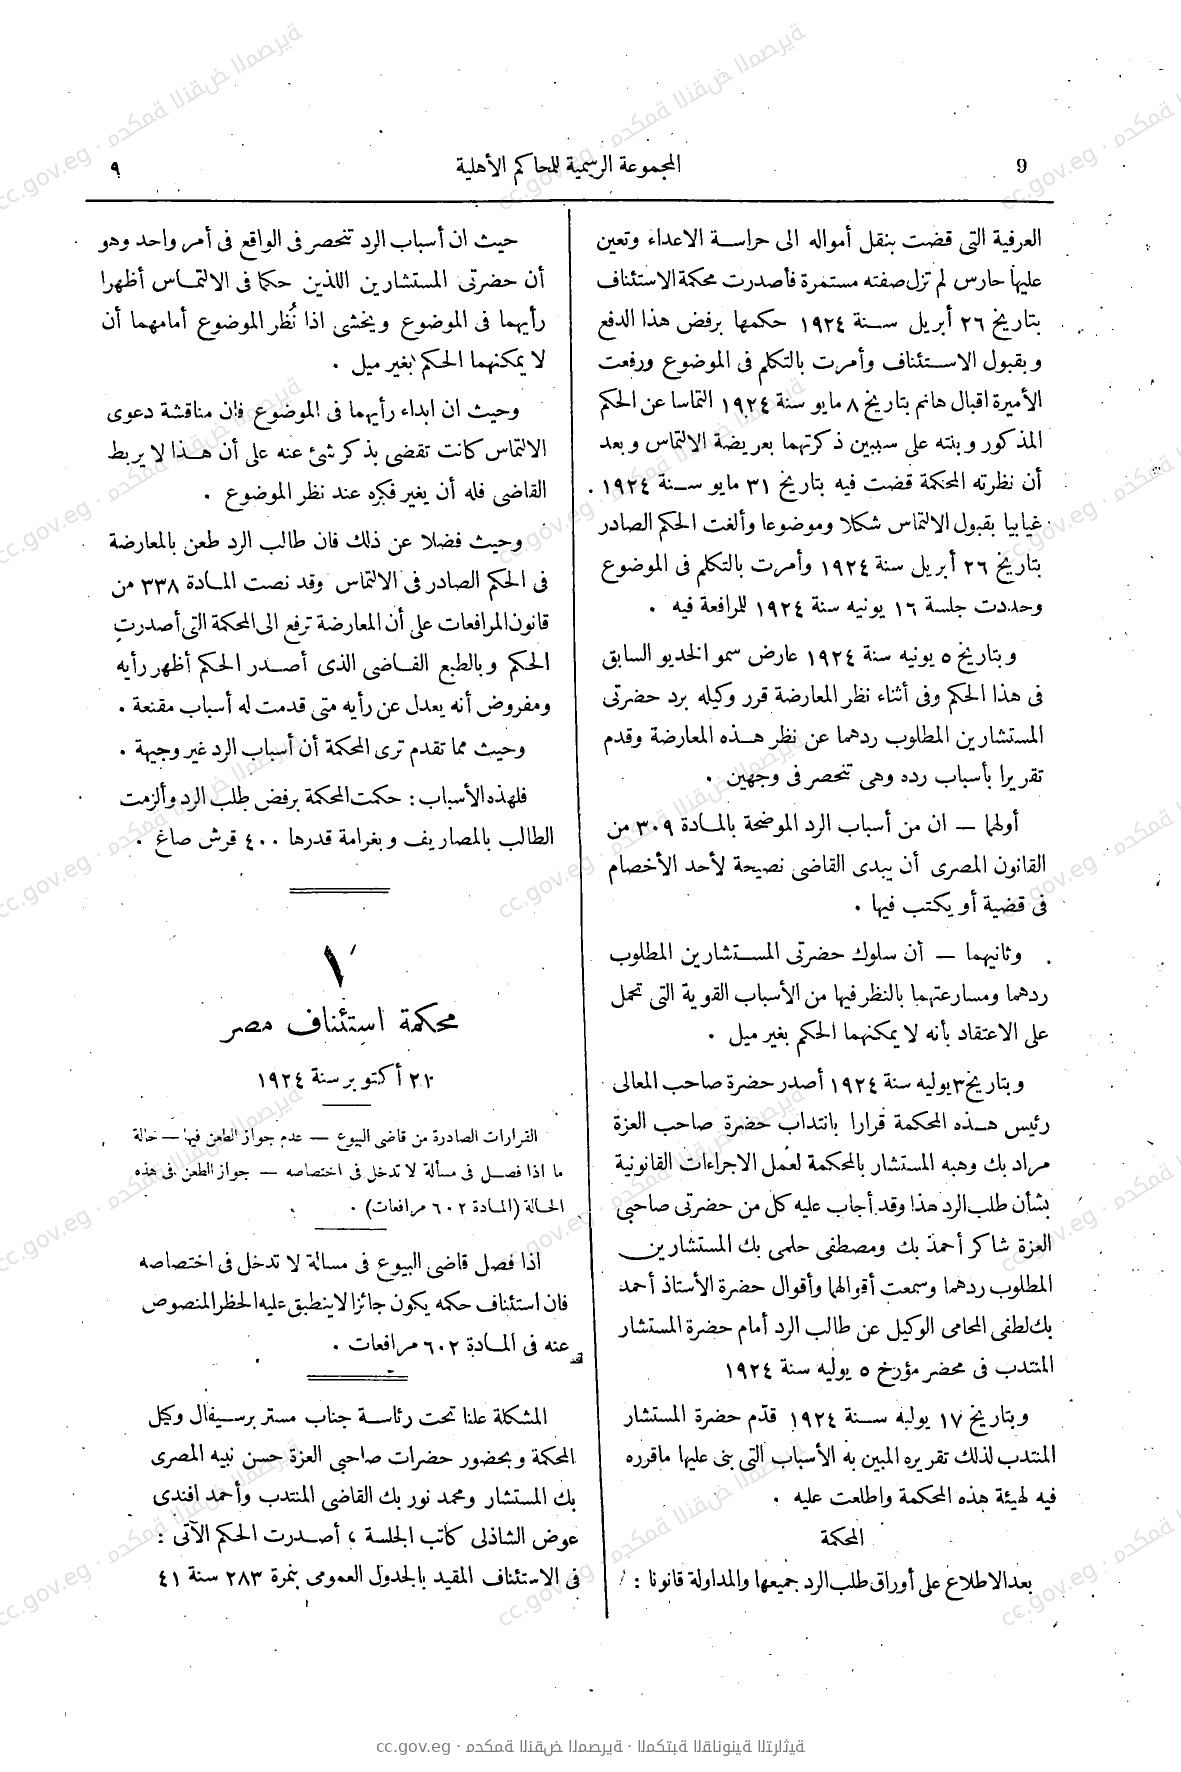 9
المجموعة الرسمية للمحاكم الأهلية
٩
العرفية التى قضت بنقل أمواله الى حراسة الاعداء وتعين
عليها حارس لم تزل صفته مستمرة فأصدرت محكمة الاستئناف
بتاريخ ٢٦ أبريل سنة ١٩٢٤ حكمها برفض هذا الدفع
وبقبول الاستئناف وأمرت بالتكلم فى الموضوع ورفعت
الأميرة اقبال هانم بتاريخ ٨ مايو سنة ١٩٢٤ التماسا عن الحكم
المذكور وبنته على سببين ذكرتهما بعريضة الالتماس وبعد
أن نظرته المحكمة قضت فيه بتاريخ ٣١ مايو سنة ١٩٢٤
غيابيا بقبول الالتماس شكلا وموضوعا وألغت الحكم الصادر
بتاريخ ٢٦ أبريل سنة ١٩٢٤ وأمرت بالتكلم فى الموضوع
وحددت جلسة ١٦ يونيه سنة ١٩٢٤ للمرافعة فيه .
وبتاريخ ٥ يونيه سنة ١٩٢٤ عارض سمو الخديو السابق
فى هذا الحكم وفى أثناء نظر المعارضة قرر وكيله برد حضرتى
المستشارين المطلوب ردهما عن نظر هذه المعارضة وقدم
تقريرا بأسباب رده وهى تنحصر فى وجهين .
أولهما — ان من أسباب الرد الموضحة بالمادة ٣٠٩ من
القانون المصرى أن يبدى القاضى نصيحة لأحد الأخصام
فى قضية أو يكتب فيها .
وثانيهما — أن سلوك حضرتى المستشارين المطلوب
ردهما ومسارعتهما بالنظر فيها من الأسباب القوية التى تحمل
على الاعتقاد بأنه لا يمكنهما الحكم بغير ميل .
وبتاريخ ٣ يوليه سنة ١٩٢٤ أصدر حضرة صاحب المعالى
رئيس هذه المحكمة قرارا بانتداب حضرة صاحب العزة
مراد بك وهبه المستشار بالمحكمة لعمل الاجراءات القانونية
بشأن طلب الرد هذا وقد أجاب عليه كل من حضرتى صاحبى
العزة شاكر أحمد بك ومصطفى حلمى بك المستشارين
المطلوب ردهما وسمعت أقوالها وأقوال حضرة الأستاذ أحمد
بك لطفى المحامى الوكيل عن طالب الرد أمام حضرة المستشار
المنتدب فى محضر مؤرخ ٥ يوليه سنة ١٩٢٤
وبتاريخ ١٧ يوليه سنة ١٩٢٤ قدّم حضرة المستشار
المنتدب لذلك تقريره المبين به الأسباب التى بنى عليها ماقرره
فيه لهيئة هذه المحكمة واطلعت عليه .
المحكمة
بعد الاطلاع على أوراق طلب الرد جميعها والمداولة قانونا :
حيث ان أسباب الرد تنحصر فى الواقع فى أمر واحد وهو
أن حضرتى المستشارين اللذين حكما فى الالتماس أظهرا
رأيهما فى الموضوع ويخشى اذا نُظر الموضوع أمامهما أن
لا يمكنهما الحكم بغير ميل .
وحيث ان ابداء رأيهما فى الموضوع فان مناقشة دعوى
الالتماس كانت تقضى بذكر شئ عنه على أن هذا لا يربط
القاضى فله أن يغير فكره عند نظر الموضوع .
وحيث فضلا عن ذلك فان طالب الرد طعن بالمعارضة
فى الحكم الصادر فى الالتماس وقد نصت المادة ٣٣٨ من
قانون المرافعات على أن المعارضة ترفع الى المحكمة التى أصدرت
الحكم وبالطبع القاضى الذى أصدر الحكم أظهر رأيه
ومفروض أنه يعدل عن رأيه متى قدمت له أسباب مقنعة .
وحيث مما تقدم ترى المحكمة أن أسباب الرد غير وجيهة .
فلهذه الأسباب : حكمت المحكمة برفض طلب الرد وألزمت
الطالب بالمصاريف وبغرامة قدرها ٤٠٠ قرش صاغ .
١
محكمة استئناف مصر
٢٢ أكتوبر سنة ١٩٢٤
القرارات الصادرة من قاضى البيوع — عدم جواز الطعن فيها — حالة
ما اذا فصل فى مسألة لا تدخل فى اختصاصه — جواز الطعن فى هذه
الحالة (المادة ٦٠٢ مرافعات) .
اذا فصل قاضى البيوع فى مسالة لا تدخل فى اختصاصه
فان استئناف حكمه يكون جائزا لاينطبق عليه الحظر المنصوص
عنه فى المادة ٦٠٢ مرافعات .
المشكلة علنا تحت رئاسة جناب مستر برسيفال وكيل
المحكمة وبحضور حضرات صاحبى العزة حسن نبيه المصرى
بك المستشار ومحمد نور بك القاضى المنتدب وأحمد افندى
عوض الشاذلى كاتب الجلسة ، أصدرت الحكم الآتى :
فى الاستئناف المقيد بالجدول العمومى بنمرة ٢٨٣ سنة ٤١
cc.gov.eg · محكمة النقض المصرية · المكتبة القانونية التراثية